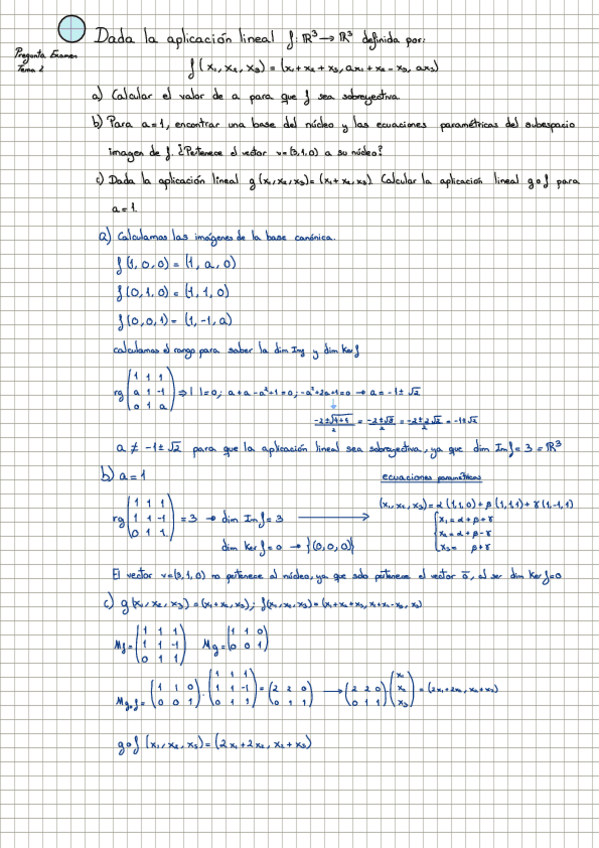 Dada la aplicación lineal f: ℝ³ → ℝ³ definida por:
Pregunta Examen
Tema 2
f (x₁, x₂, x₃) = (x₁ + x₂ + x₃, ax₁ + x₂ - x₃, ax₃)
a) Calcular el valor de a para que f sea sobreyectiva
b) Para a=1, encontrar una base del núcleo y las ecuaciones paramétricas del subespacio
imagen de f. ¿Pertenece el vector v=(3,1,0) a su núcleo?
c) Dada la aplicación lineal g(x₁,x₂,x₃)=(x₁+x₂,x₃) Calcular la aplicación lineal g∘f para
a=1.
a) Calculamos las imágenes de la base canónica.
f(1,0,0)=(1,a,0)
f(0,1,0)=(1,1,0)
f(0,0,1)=(1,-1,a)
calculamos el rango para saber la dim Img y dim Kerf
rg (1 1 1; a 1 -1; 0 1 a) ⇒ | |=0; a+a-a²+1=0; -a²+2a+1=0 → a=-1±√2
(-2±√4+4)/2 = (-2±√8)/2 = (-2±2√2)/2 = -1±√2
a ≠ -1±√2 para que la aplicación lineal sea sobreyectiva, ya que dim Imf=3=ℝ³
b) a=1
ecuaciones paramétricas
rg (1 1 1; 1 1 -1; 0 1 1) = 3 → dim Imf=3 → (x₁,x₂,x₃)=α(1,1,0)+β(1,1,1)+γ(1,-1,1)
{x₁=α+β+γ
x₂=α+β-γ
x₃= β+γ
dim Kerf=0 → {(0,0,0)}
El vector v=(3,1,0) no pertenece al núcleo, ya que solo pertenece el vector 0̄, al ser dim Kerf=0
c) g(x₁,x₂,x₃)=(x₁+x₂,x₃); f(x₁,x₂,x₃)=(x₁+x₂+x₃,x₁+x₂-x₃,x₃)
Mf=(1 1 1; 1 1 -1; 0 1 1) Mg=(1 1 0; 0 0 1)
Mg∘f=(1 1 0; 0 0 1)·(1 1 1; 1 1 -1; 0 1 1)=(2 2 0; 0 1 1) → (2 2 0; 0 1 1)(x₁; x₂; x₃)=(2x₁+2x₂,x₂+x₃)
g∘f(x₁,x₂,x₃)=(2x₁+2x₂,x₂+x₃)